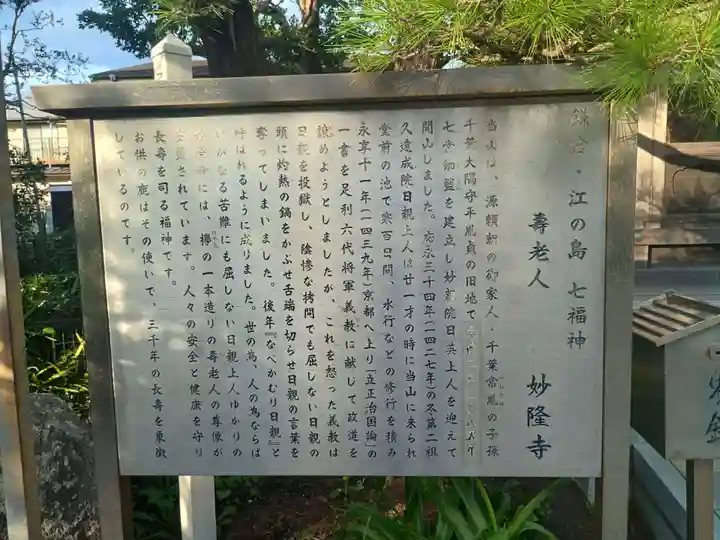 鎌倉・江の島 七福神
壽老人 妙隆寺
当山は、源頼朝の御家人・千葉常胤の子孫
千葉大隅守平胤貞の旧地で
七堂伽藍を建立し妙親院日英上人を迎えて
開山しました。応永三十四年(一四二七年)の冬第二祖
久遠成院日親上人は廿一才の時に当山に来られ
堂前の池で寒百日間、水行などの修行を積み
永享十一年(一四三九年)京都へ上り「立正治国論」の
一書を足利六代将軍義教に献じて政道を
諫めようとしましたが、これを怒った義教は
日親を投獄し、陰惨な拷問でも屈しない日親の
頭に灼熱の鍋をかぶせ舌端を切らせ日親の言葉を
奪ってしまいました。後年『なべかむり日親』と
呼ばれるように成りました。世の為、人の為ならば
いかなる苦難にも屈しない日親上人ゆかりの
には、欅の一本造りの壽老人の尊像が
安置されています。人々の安全と健康を守り
長壽を司る福神です。
お供の鹿はその使いで、三千年の長壽を象徴
しているのです。